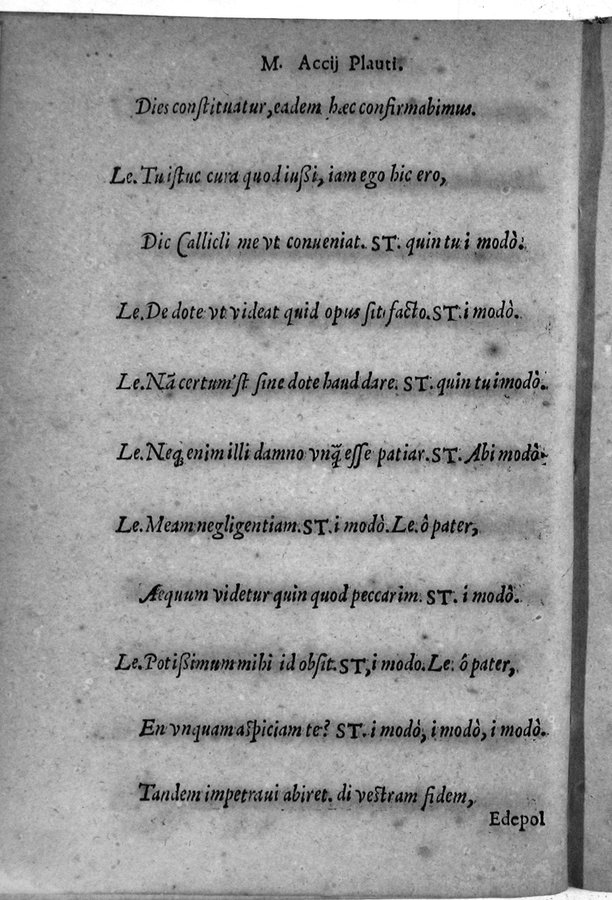 M. Accij Plauti.
Dies conſtituatur, eadem hæc confirmabimus.
Le. Tu iſtuc cura quod iußi, iam ego hic ero,
Dic Callicli me vt conueniat. ST. quin tu i modò.
Le. De dote vt videat quid opus ſit facto. ST. i modò.
Le. Nã certum'ſt ſine dote haud dare. ST. quin tu i modò.
Le. Neq; enim illi damno vnq̃ eſſe patiar. ST. Abi modò.
Le. Meam negligentiam. ST. i modò. Le. ô pater,
Aequum videtur quin quod peccarim. ST. i modò.
Le. Potißimum mihi id obſit. ST, i modo. Le. ô pater,
En vnquam aſpiciam te? ST. i modò, i modò, i modò.
Tandem impetraui abiret. di veſtram fidem,
Edepol